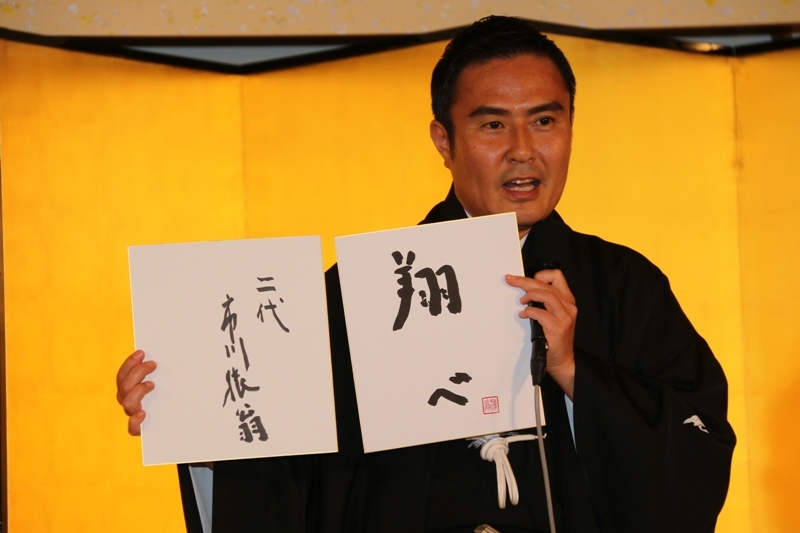 翔べ
二代
市川猿翁